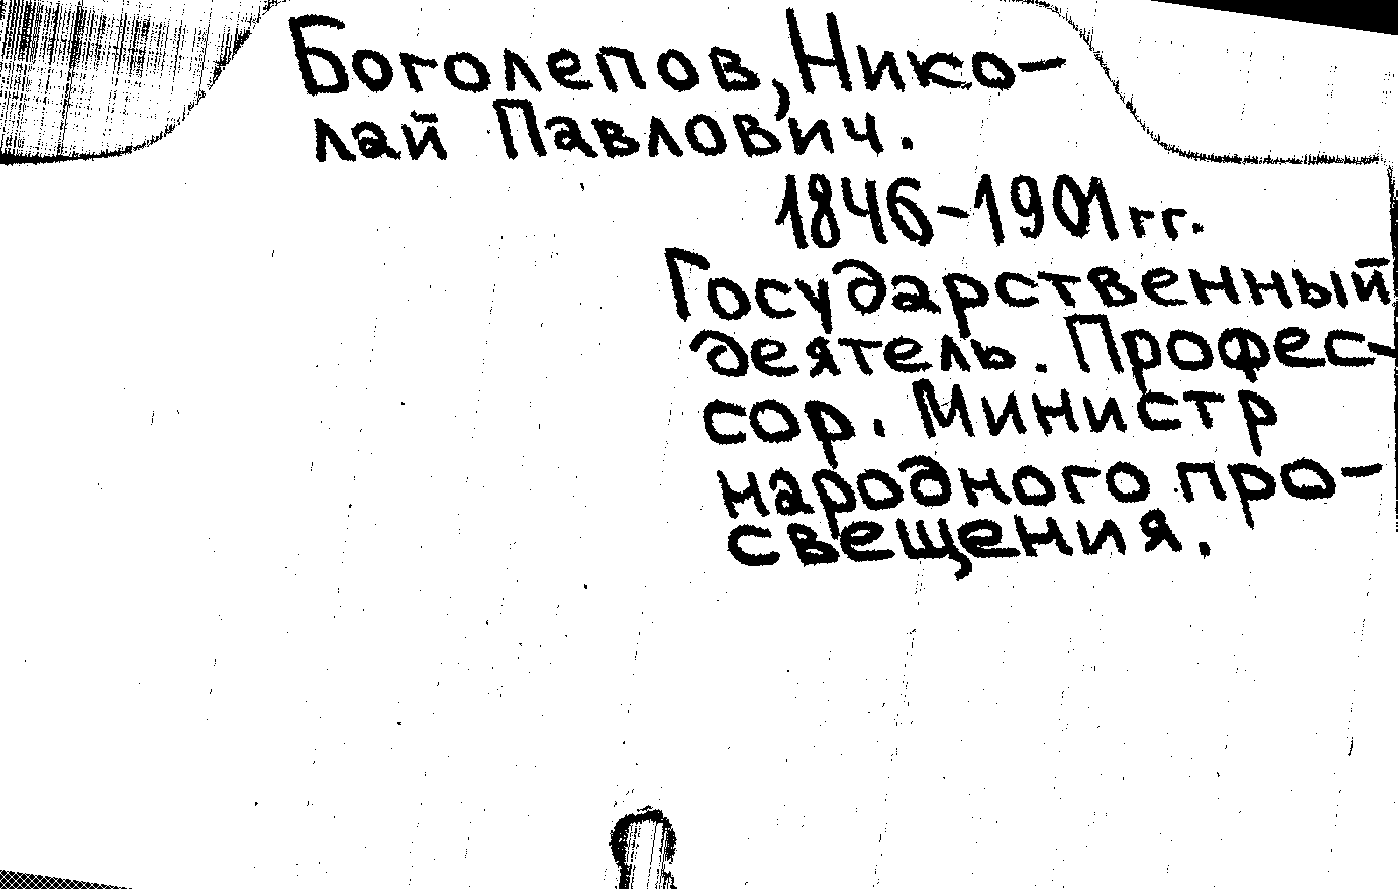 Боголепов, Нико-
лай Павлович.
1846-1901 гг.
Государственный
деятель. Профес-
сор. Министр
народного про-
свещения.